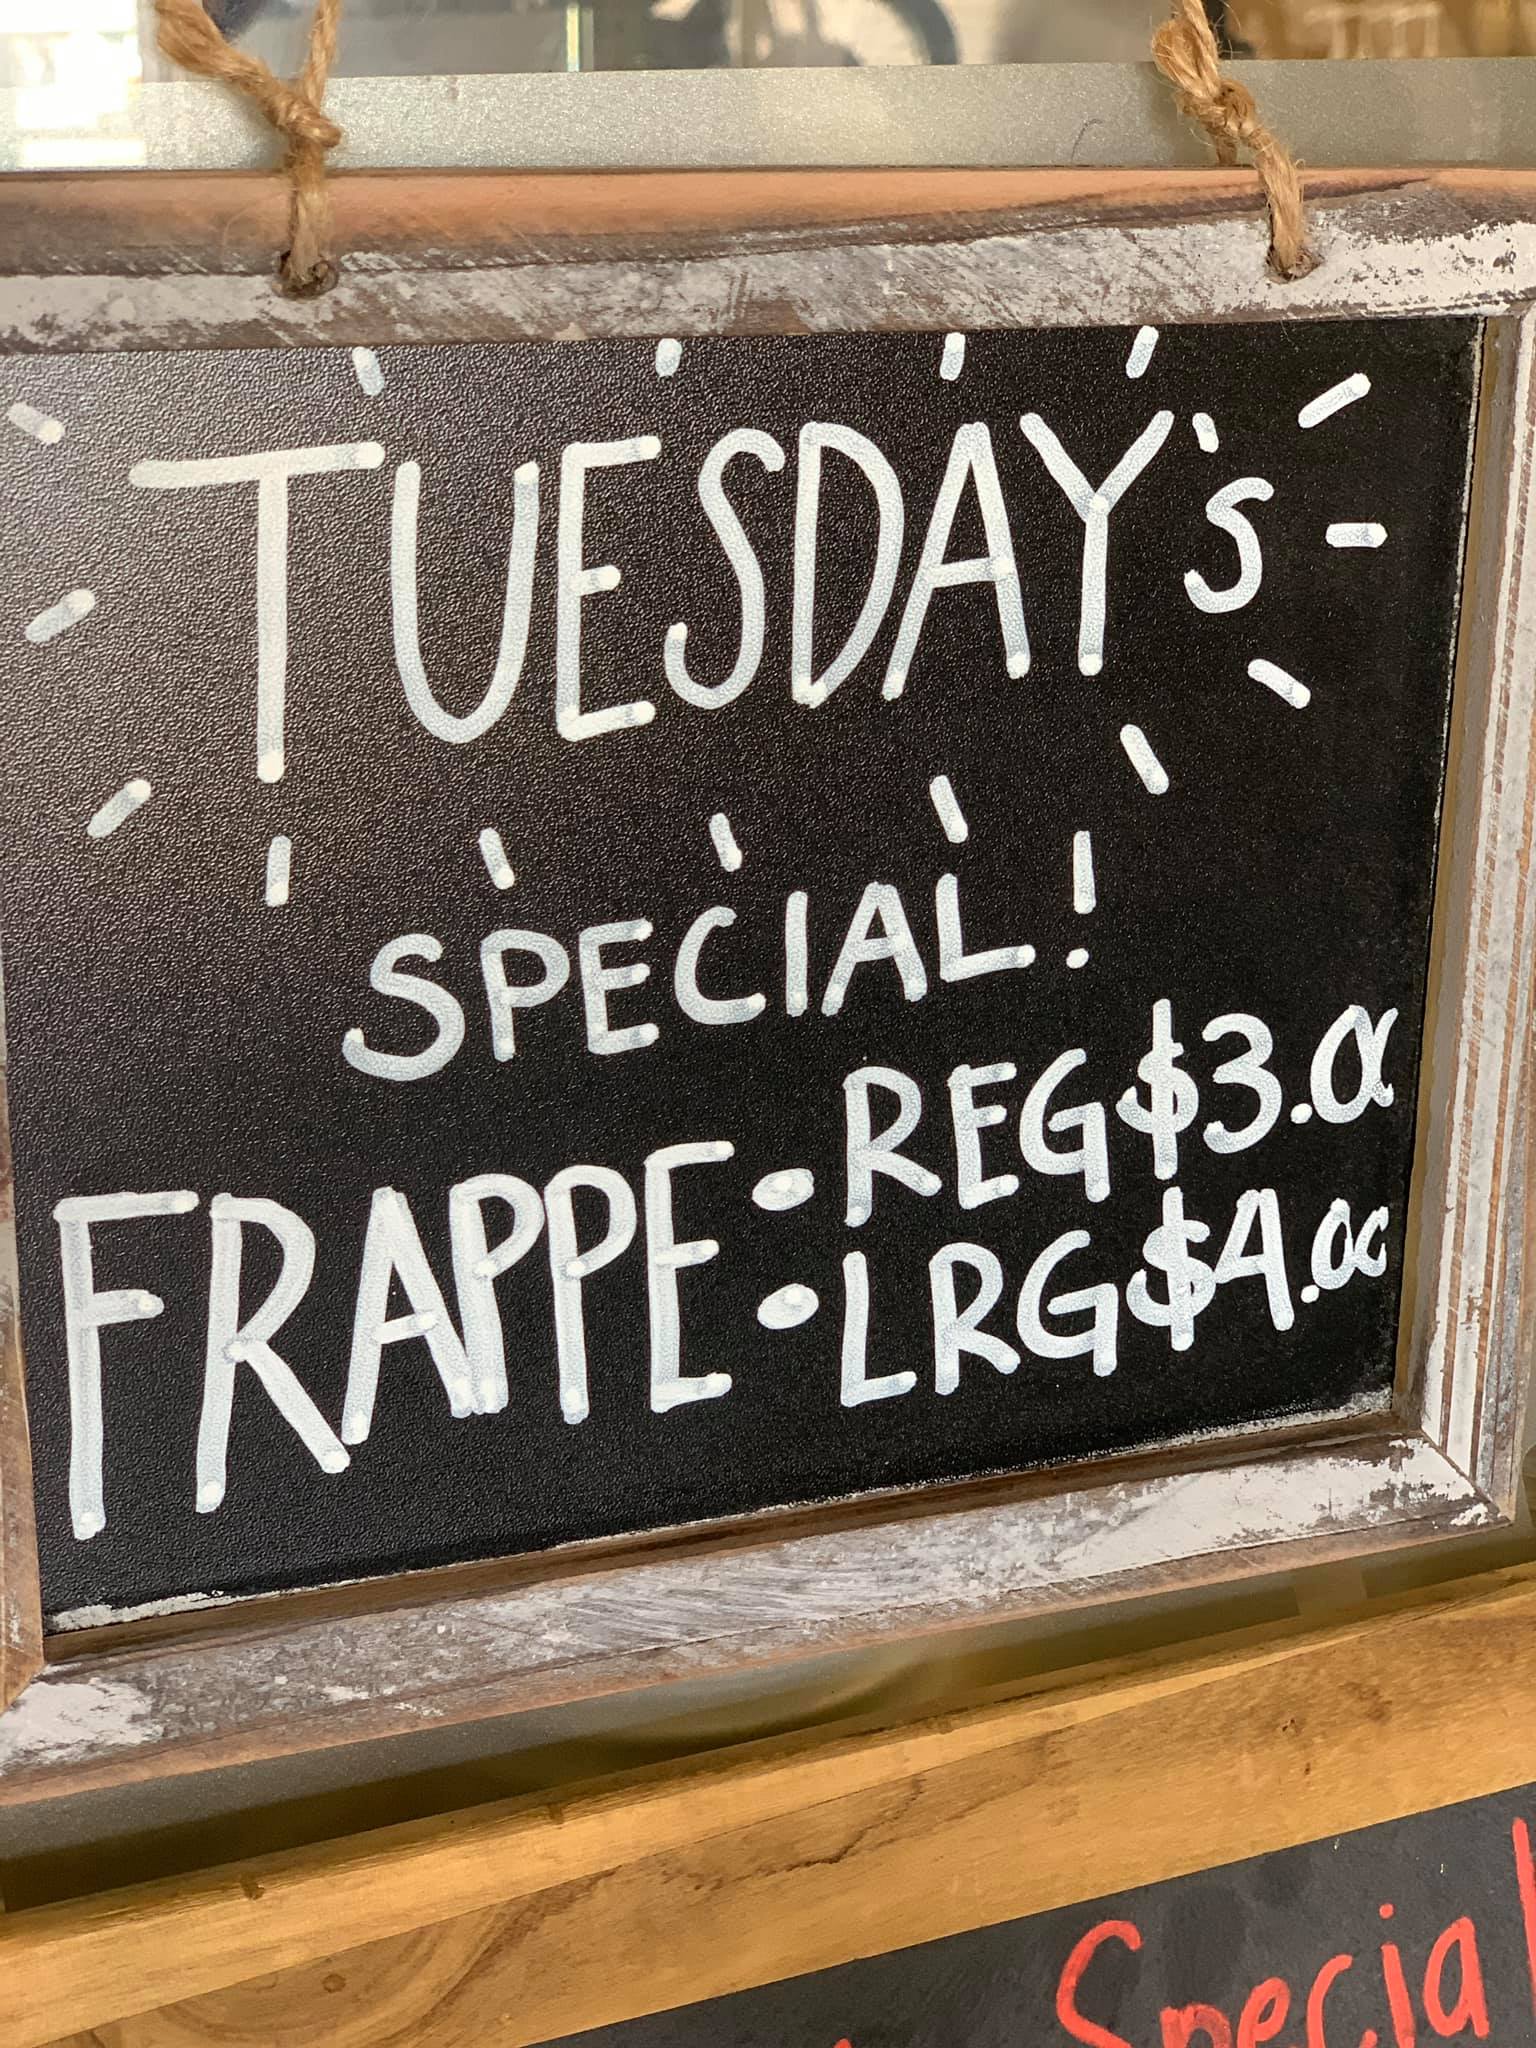 TUESDAY's
SPECIAL!
FRAPPE • REG $3.00
• LRG $4.00
Special